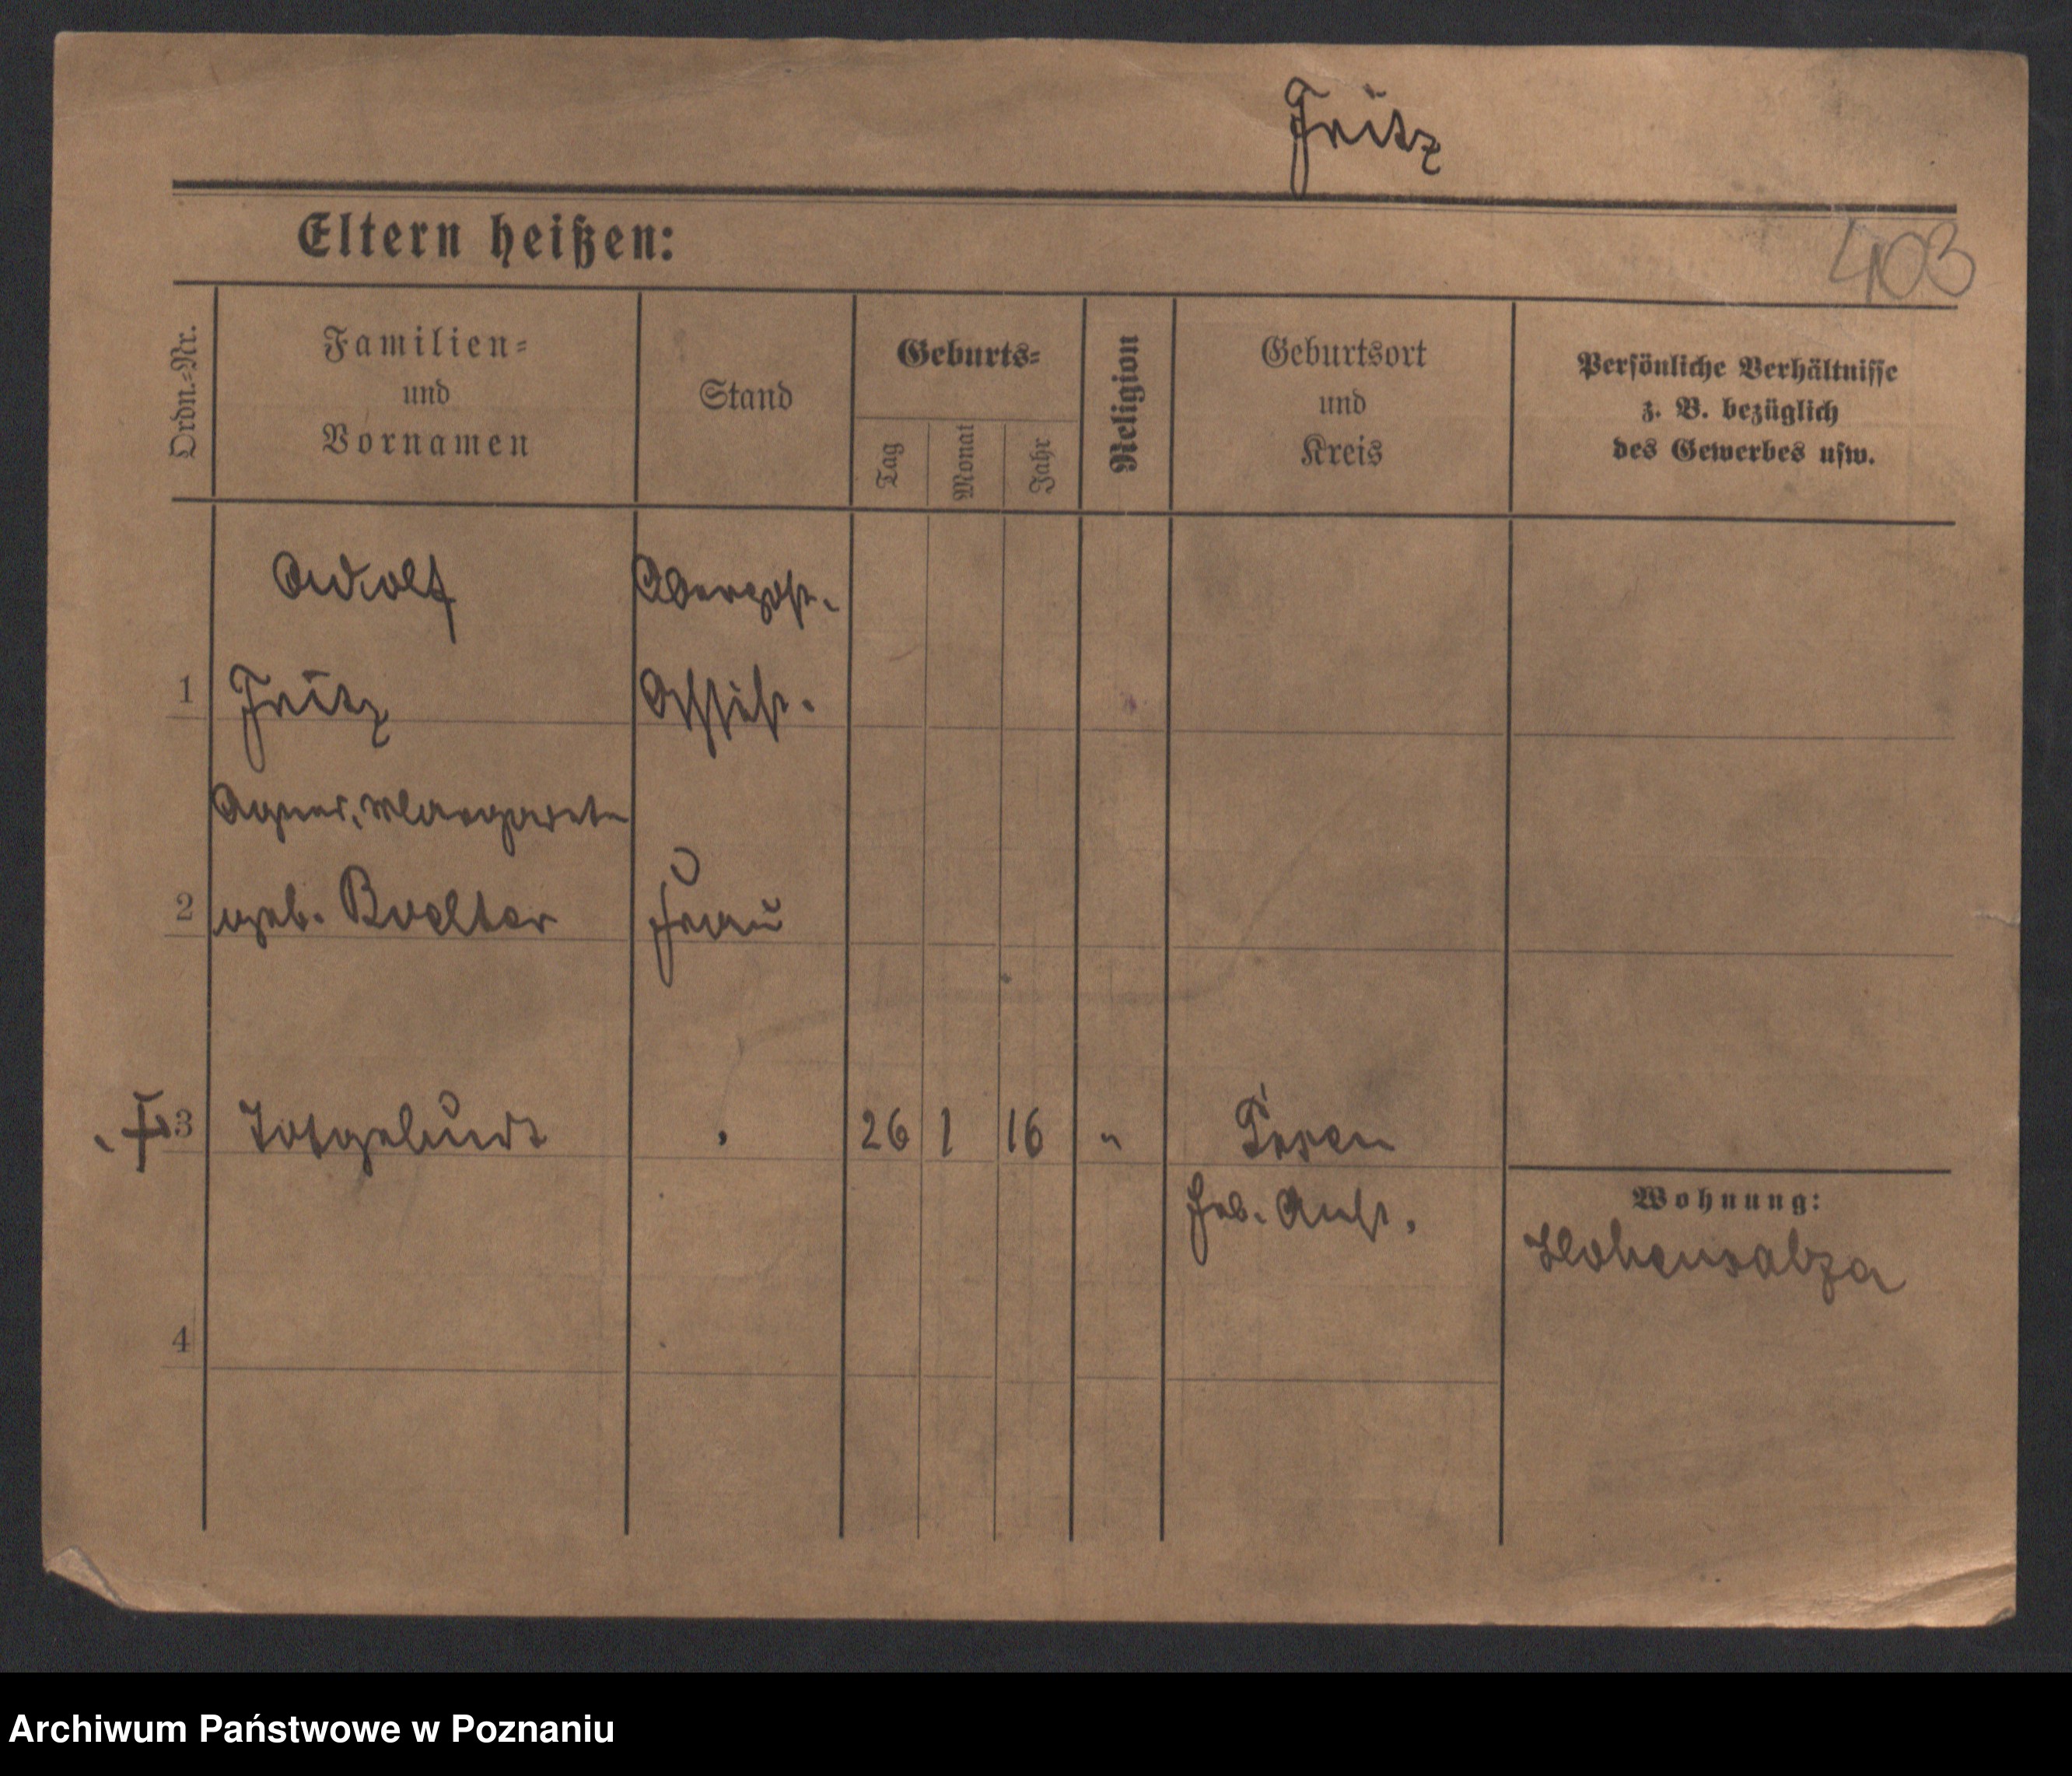 Fritz
Eltern heißen:
403
Ordn.-Nr.
Familien-
und
Vornamen
Stand
Geburts-
Tag
Monat
Jahr
Religion
Geburtsort
und
Kreis
Persönliche Verhältnisse
z. B. bezüglich
des Gewerbes usw.
Adolf
Oberpost-
1 Fritz
Assist.
Agnes, Margarete
2 geb. Boelter
Frau
3 Totgeburt 26 1 16 " Posen
Heb. Anst.
Wohnung:
Hohensalza
4
Archiwum Państwowe w Poznaniu